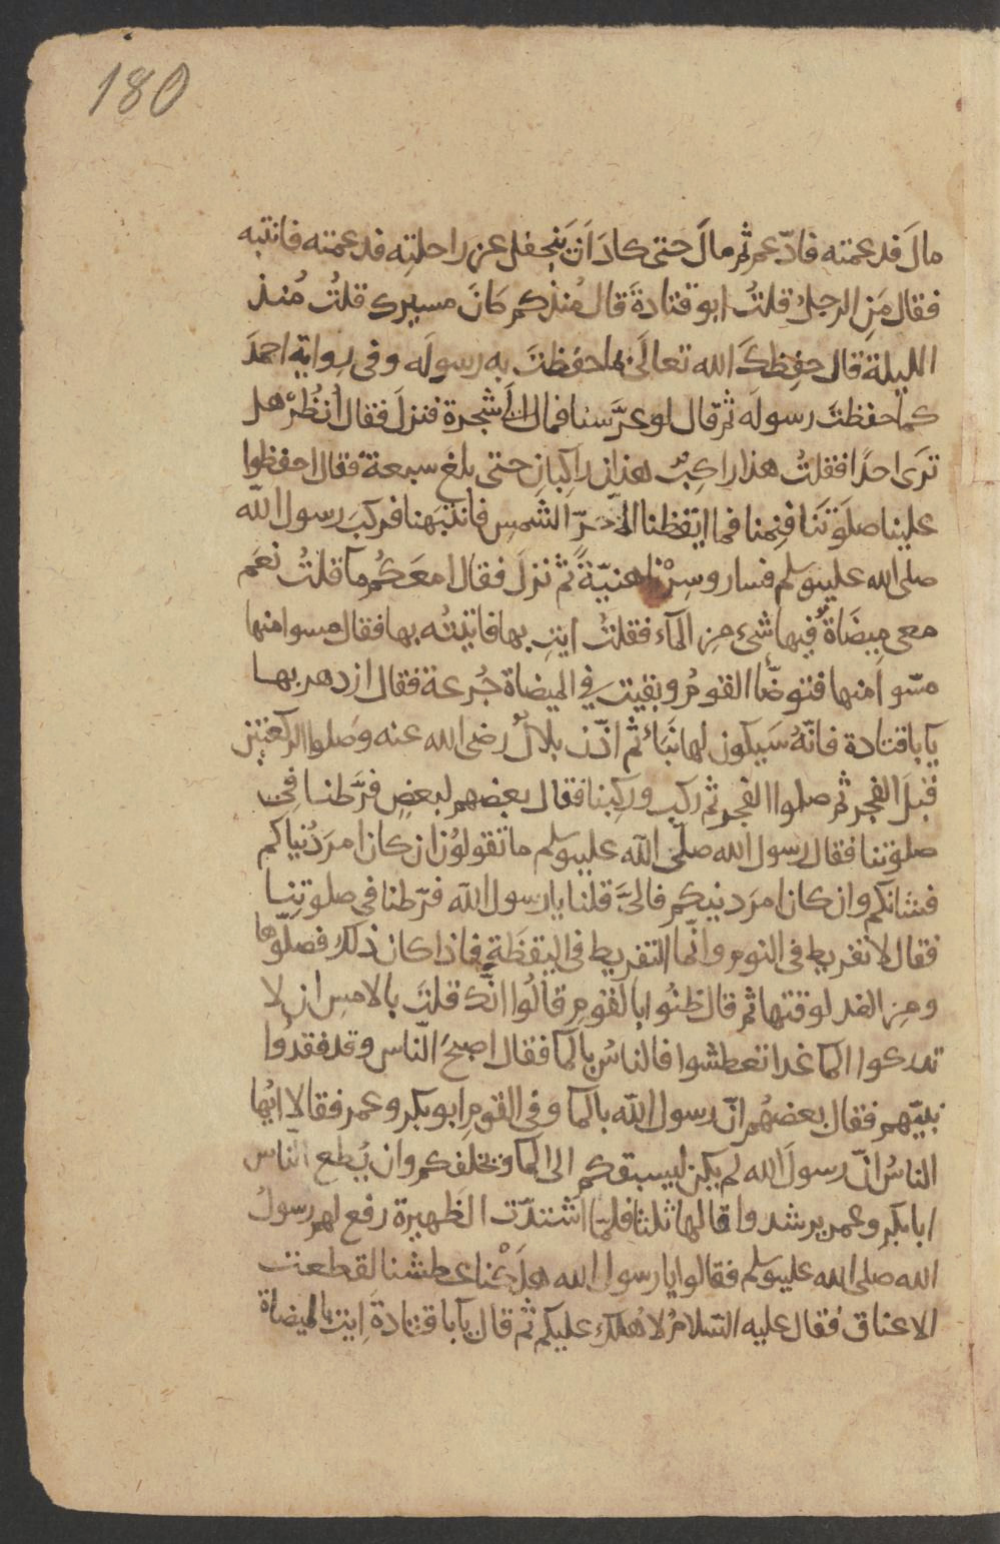 180
مالَ فدعمته فادّعم ثم مالَ حتى كادَ اَنْ يَنجفل عن راحلتِه فدعمته فانتبه
فقال مَنِ الرجلُ قلتُ ابو قتادةَ قال مُنذكم كانَ مسيرك قلتُ مُنذ
الليلة قال حفِظكَ الله تعالَى كما حفظتَ به رسولَه وفى رِوايةِ احمدَ
كما حفظتَ رسولَه ثمّ قال لو عرَّسنا فمال الىَ شجرة فنزلَ فقال اُنظُرْ هل
ترَى احدًا فقلتُ هذا راكِبٌ هذانِ راكبانِ حتى بلغ سبعةً فقال احفظوا
علينا صلَوتَنا فنِمنا فما ايقظنا الا حَرّ الشمسِ فانتبَهنا فركبَ رسول الله
صلى الله عليه وسلم فسار وسِرْنا هنيّةً ثم نزلَ فقال امعَكُم ما قلتُ نعَم
معى مِيضَاةٌ فيها شىء مِن المآء فقلتُ ايتِ بها فاتيتُه بها فقال مسوا منها
مسّوا منها فتوضّأ القومُ وبقيت فى الميضاة جُرعة فقال ازدهر بها
يآباقتادة فانّهُ سَيكون لها نَبَائٌ ثم اذّن بلالٌ رضى الله عنه وصَلوا الركعتين
قبلَ الفجر ثم صلوا الفجر ثم ركب وركِبنا فقال بعضهم لبعضٍ فرَّطنا فى
صلوتنا فقال رسول الله صلّى الله عليه وسلم ما تقولوُن ان كان امرَ دُنياكم
فشانكم وان كان امرَ دينكم فالىَّ قلنا يا رسول الله فرّطنا فى صلوتِنا
فقال لا تفريط فى النوم وانّما التفريط فى اليقظَةِ فاذا كان ذلك فصلّوها
ومِن الغد لوقتها ثم قال ظنُوا بالقومِ قالُوا انّك قلتَ بالامسِ ان لا
تدركوا الما غدا تعطشوا فالناسُ بالما فقال اصبحَ النّاس وقد فقدُوا
نبيّهم فقال بعضهُم انّ رسول الله بالما وفى القومِ ابو بكر وعمر فقالا ايّها
الناسُ انّ رسولَ الله لم يكن ليسبقكم الى الما ويخلفكم وان يُطع الناس
ابابكرٍ وعمر يرشدوا قالها ثلثا فلمّا اشتدّت الظهيرة رفع لهم رسولُ
الله صلى الله عليه وسلم فقالوا يا رسول الله هلَكْنا عطشنا لقطعت
الاعناق فقال عليه السّلامُ لا هُلك عليكم ثم قال يآباقتادةَ ايت بالميضاة